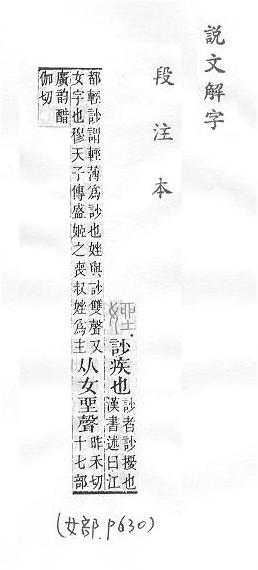 説文解字
段注本
訬疾也
訬者訬擾也
漢書述曰江
都輕訬謂輕薄爲訬也㛗與訬雙聲又
女字也穆天子傳盛姬之喪叔㛗爲主
从女𡋲聲
昨禾切
十七部
廣韵醋
伽切
(女部.P630)